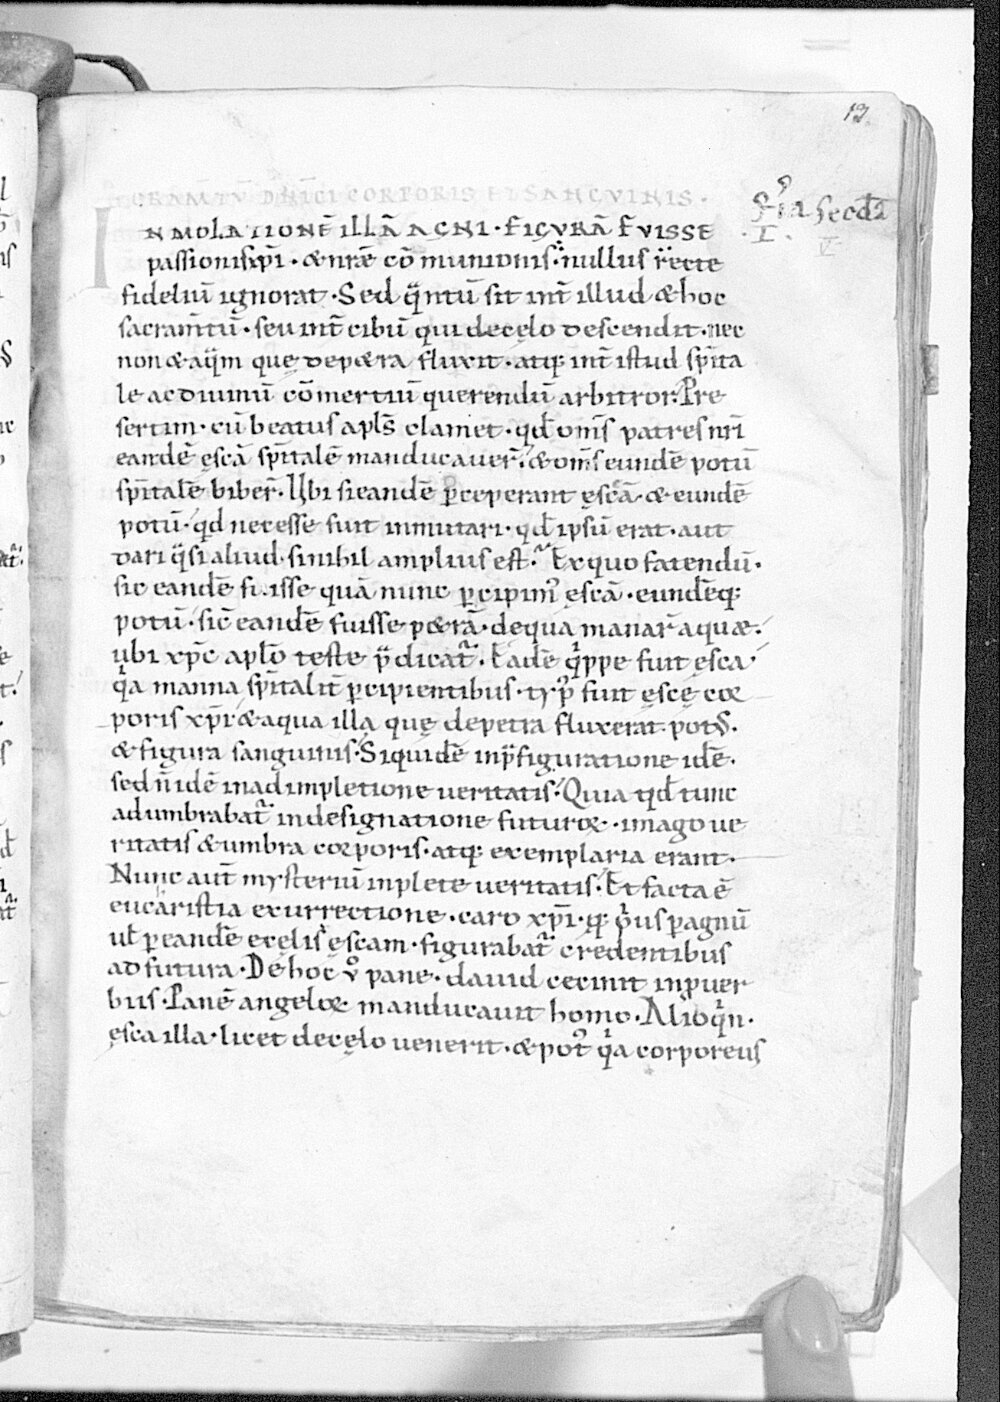 12
CRAM̄TV̄ DN̄ICI CORPORIS ET SANGVINIS.
feria secd̄a
I.
V
INMOLATIONĒ ILLĀ AGNI · FIGVRĀ FVISSE
passionis xp̄i · & nr̄æ cōmunionis · nullus recte
fideliū ignorat · Sed qͣntū sit int̄ illud & hoc
sacram̄tū · seu int̄ cibū qui de cęlo descendit · nec
non & aqͣm quę de p&ra fluxit · atq; int̄ istud sp̄ita
le ac diuinū cōmertiū querendū arbitror. Pre
sertim · cū beatus apl̄s clamet · qd̄ om̄s patres nr̄i
eandē ęscā sp̄italē manducauer̄ · & om̄s eundē potū
sp̄italē biber̄. Ubi si eandē p̄ceperant ęscā · & eundē
potū · qd necesse fuit inmutari · qd̄ ipsū erat · aut
dari qͣsi aliud · si nihil amplius est. Ex quo fatendū ·
sic eandē fuisse quā nunc p̄cipim᾿ ęscā · eundēq;
potū · sic̄ eandē fuisse p&rā · de qua manar̄ aquæ.
ubi xp̄c aplō teste p̄dicat᷑. Eadē qͥppe fuit ęsca
qͥa manna sp̄italit̄ p̄cipientibus · typ᾿ fuit ęscę cor
poris xp̄i & aqua illa quę de petra fluxerat pot᾿.
& figura sanguinis. Siquidē in p̄figuratione idē.
sed n̄ idē in adimpletione ueritatis. Quia qd̄ tunc
adumbrabat᷑ in designatione futuroꝝ · imago ue
ritatis & umbra corporis · atq; exemplaria erant.
Nunc aut̄ mysteriū inplete ueritatis. Et facta ē
eucaristia ex urrectione · caro xp̄i · q; pͥus p agnū
ul̄ p eandē e cęlis ęscam · figurabat᷑ credentibus
ad futura. De hoc v᾿o pane · dauid cecinit in p̄uer
biis. Panē angeloꝝ manducauit homo. Alioqͥn.
ęsca illa · licet de cęlo uenerit · & pot᾿ qͥa corporeus